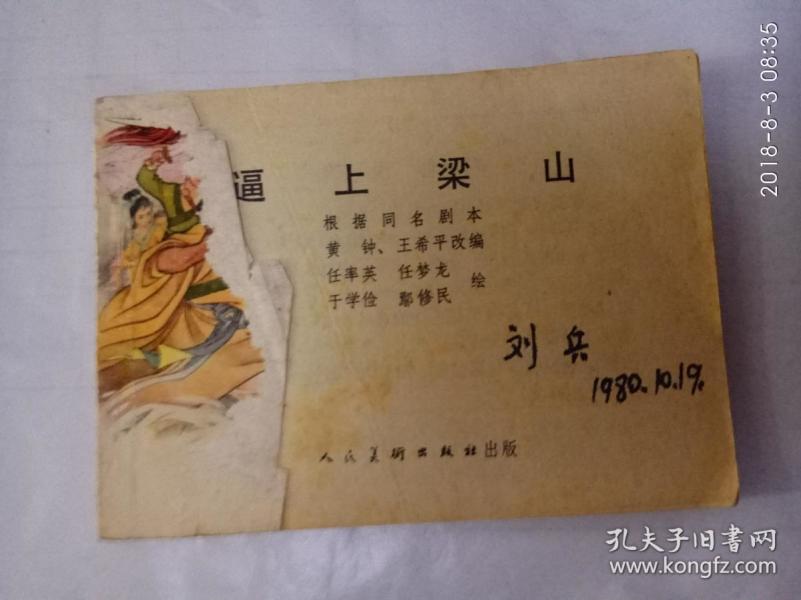 逼上梁山
根据同名剧本
黄 钟、王希平改编
任率英 任梦龙
于学俭 鄢修民 绘
刘兵
1980.10.19.
人民美術出版社出版
2018-8-3 08:35
孔夫子旧書网
www.kongfz.com